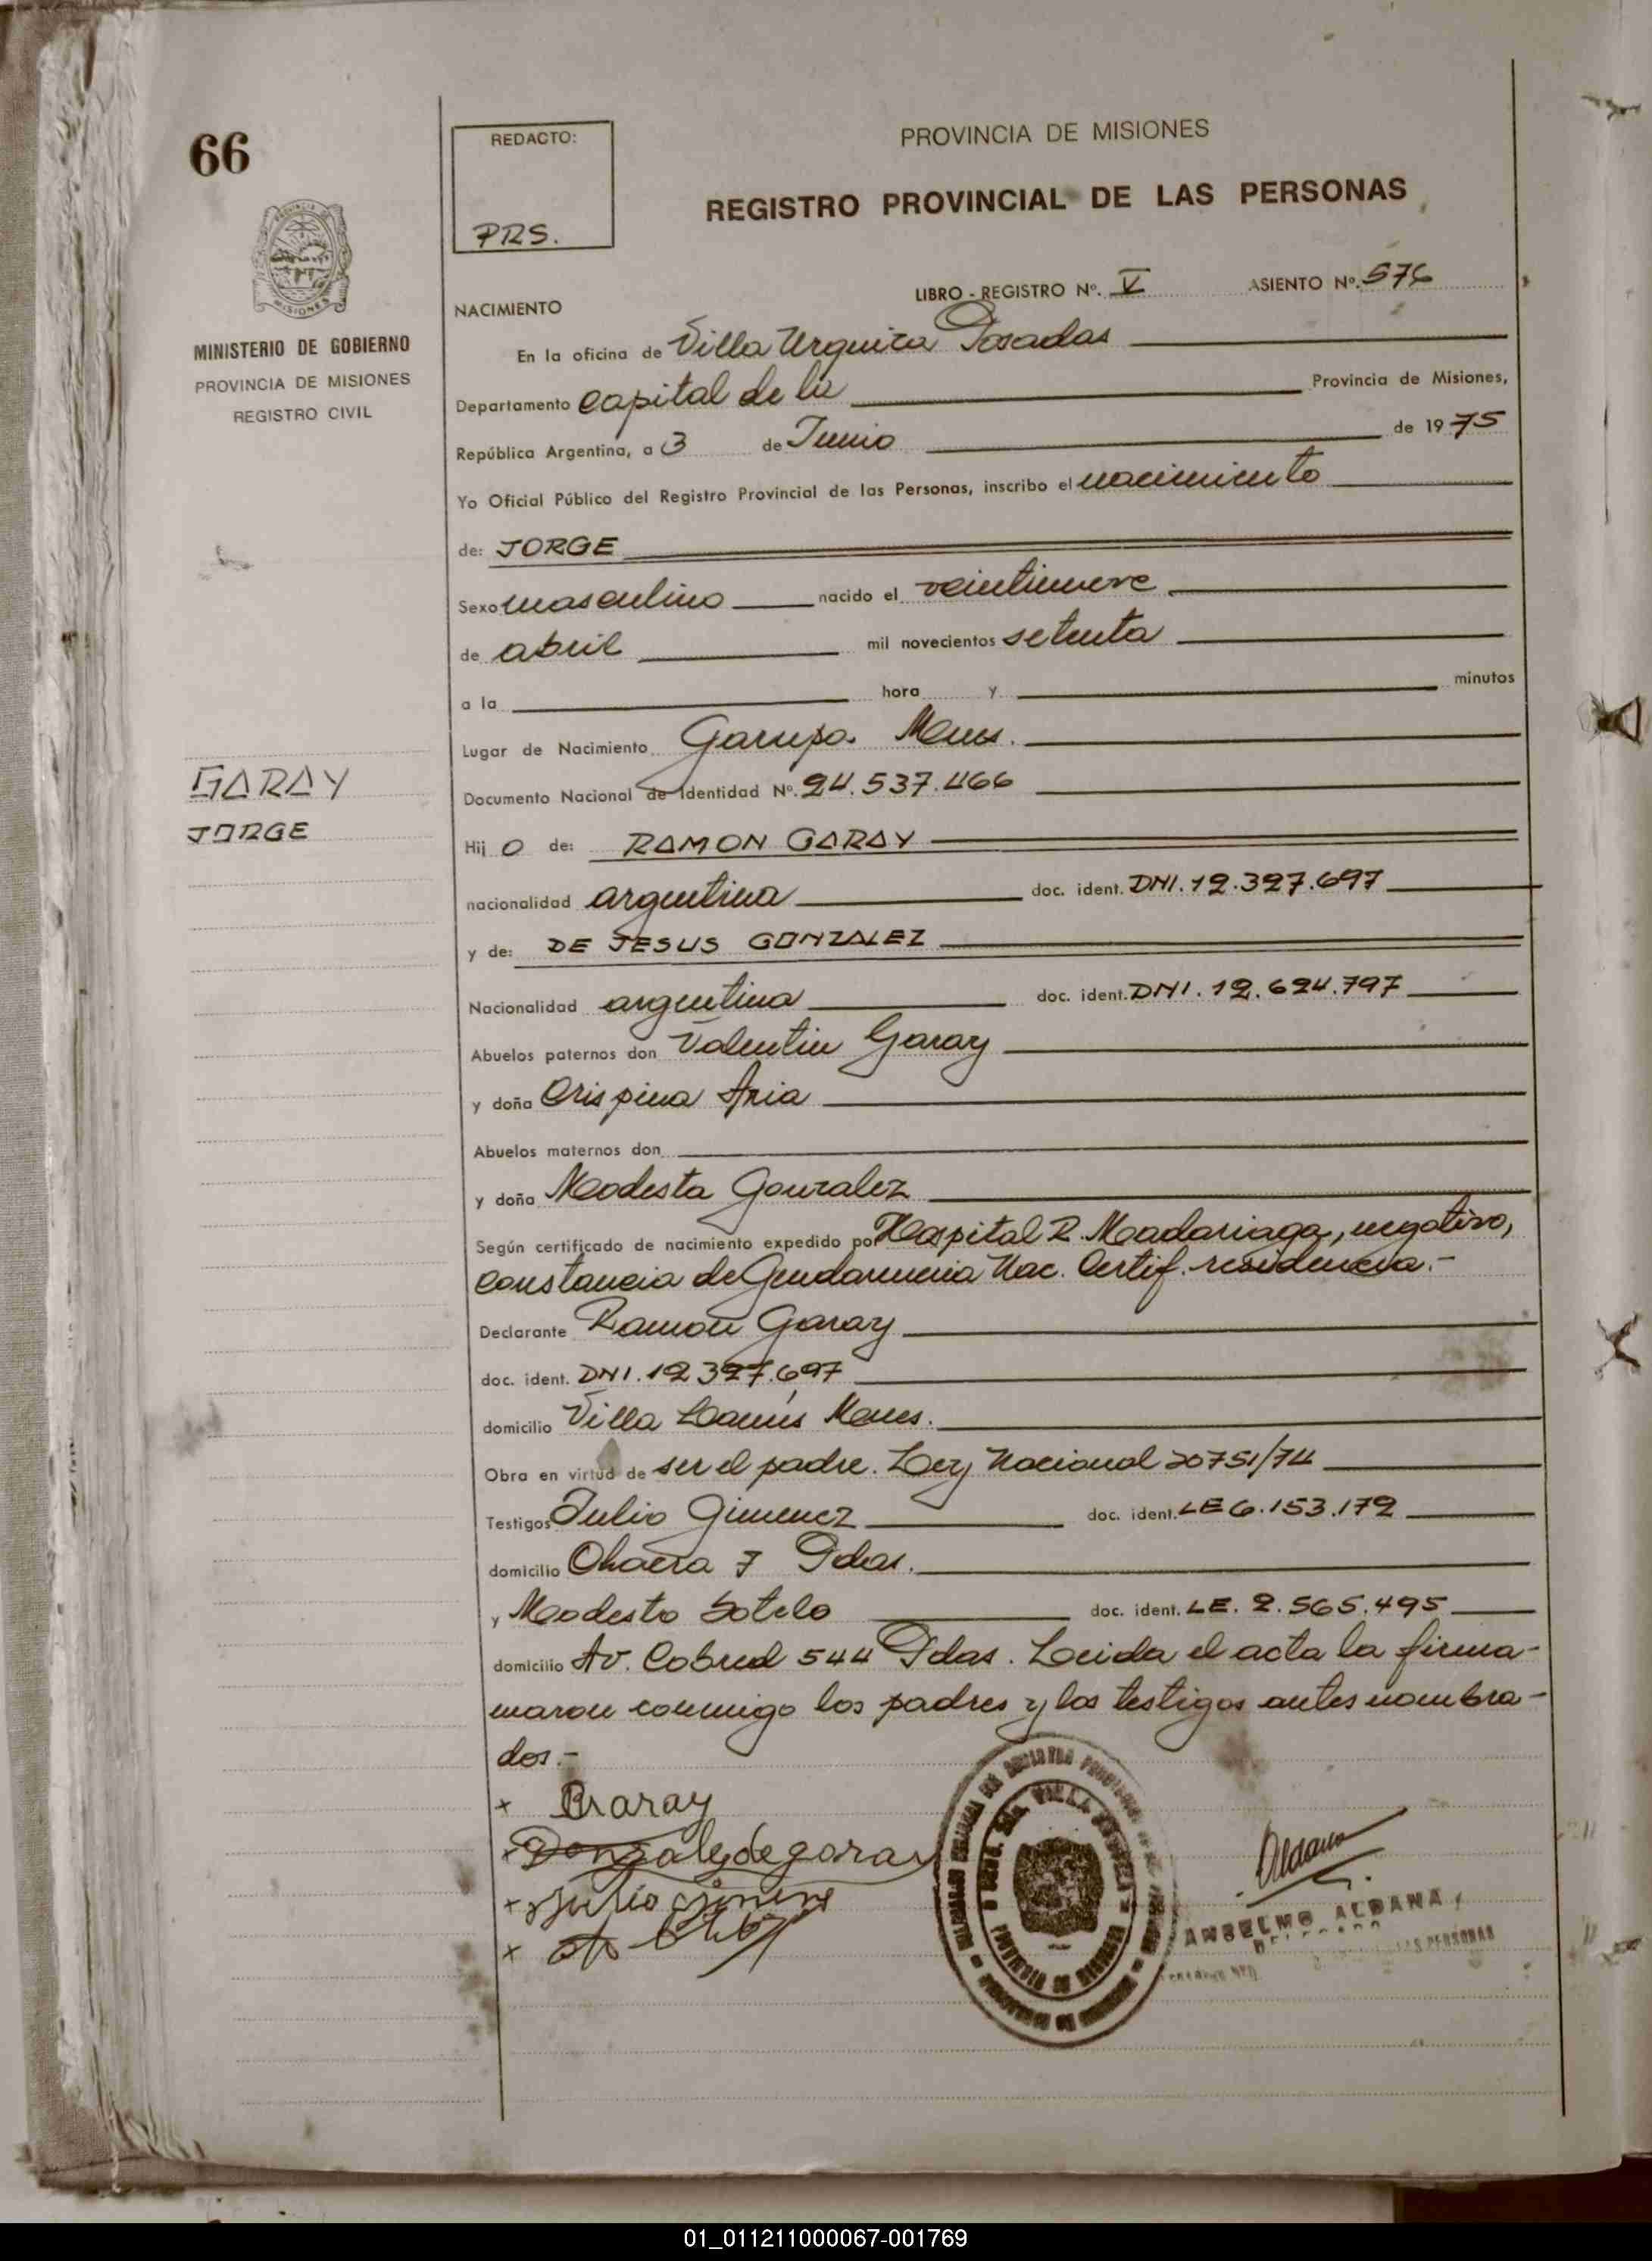 66
REDACTO:
PRS.
PROVINCIA DE MISIONES
REGISTRO PROVINCIAL DE LAS PERSONAS
MINISTERIO DE GOBIERNO
PROVINCIA DE MISIONES
REGISTRO CIVIL
LIBRO - REGISTRO Nº. V ASIENTO Nº. 576
NACIMIENTO
En la oficina de Villa Urquiza Posadas
Departamento capital de la Provincia de Misiones,
República Argentina, a 3 de Junio de 1975
Yo Oficial Público del Registro Provincial de las Personas, inscribo el nacimiento
de: JORGE
Sexo masculino nacido el veintinueve
de abril mil novecientos setenta
a la hora y minutos
Lugar de Nacimiento Garupa. Mnes.
GARAY
JORGE
Documento Nacional de Identidad Nº. 24.537.466
Hij o de: RAMON GARAY
nacionalidad argentina doc. ident. DNI. 12.327.697
y de: DE JESUS GONZALEZ
Nacionalidad argentina doc. ident. DNI. 12.624.797
Abuelos paternos don Valentin Garay
y doña Crispina Aria
Abuelos maternos don
y doña Modesta Gonzalez
Según certificado de nacimiento expedido por Hospital R. Madariaga, negativo,
constancia de Gendarmeria Nac. Certif. residencia.-
Declarante Ramon Garay
doc. ident. DNI. 12 327.697
domicilio Villa Lanús Mnes.
Obra en virtud de ser el padre. Ley Nacional 20751/74
Testigos Julio Gimenez doc. ident. LE 6.153.179
domicilio Chacra 7 Pdas.
y Modesto Sotelo doc. ident. LE. 2.565.495
domicilio Av. Cabred 544 Pdas. Leida el acta la firma-
maron conmigo los padres y los testigos antes nombra-
dos.-
+ Garay
+ Gonzalez de garay
+ Julio Gimenez
+
Aldana
ANSELMO ALDANA
LAS PERSONAS
PROVINCIA DE MISIONES
01_011211000067-001769